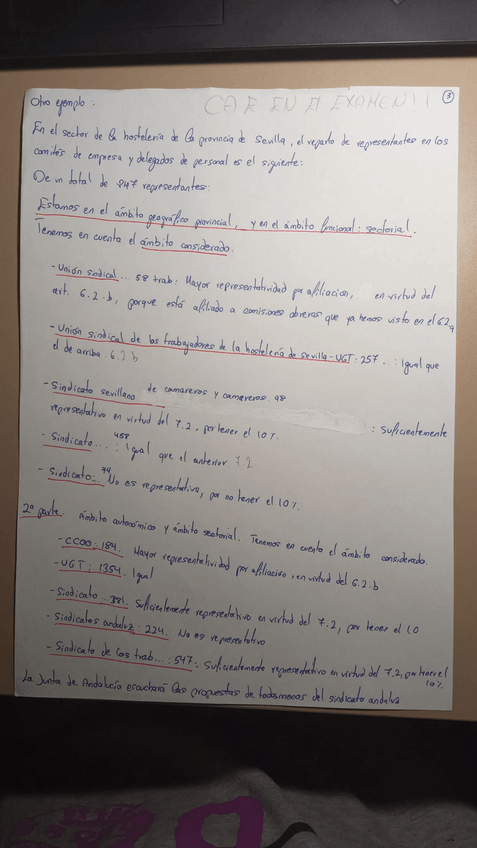 3
Otro ejemplo: CAE EN EL EXAMEN!!
En el sector de la hostelería de la provincia de Sevilla, el reparto de representantes en los
comités de empresa y delegados de personal es el siguiente:
De un total de 947 representantes:
Estamos en el ámbito geográfico provincial, y en el ámbito funcional: sectorial.
Tenemos en cuenta el ámbito considerado.
- Unión sindical... 58 trab: Mayor representatividad por afiliación, en virtud del
art. 6.2.b, porque está afiliado a comisiones obreras que ya hemos visto en el 6.2.a
- Unión sindical de los trabajadores de la hostelería de sevilla-UGT: 257...: Igual que
el de arriba 6.2 b
- Sindicato sevillano de camareros y camareras. 98
: Suficientemente
representativo en virtud del 7.2, por tener el 10%.
- Sindicato...: 458 Igual que el anterior 7.2
- Sindicato: 44 No es representativo, por no tener el 10%.
2ª parte. Ámbito autonómico y ámbito sectorial. Tenemos en cuenta el ámbito considerado.
- CCOO: 184. Mayor representatividad por afiliación, en virtud del 6.2.b
- UGT: 1354. Igual
- Sindicato...381. Suficientemente representativo en virtud del 7.2, por tener el 10
- Sindicatos andaluz: 224. No es representativo
- Sindicato de los trab...: 547: Suficientemente representativo en virtud del 7.2, por tener el
10%.
La Junta de Andalucía escuchará las propuestas de todos menos del sindicato andaluz